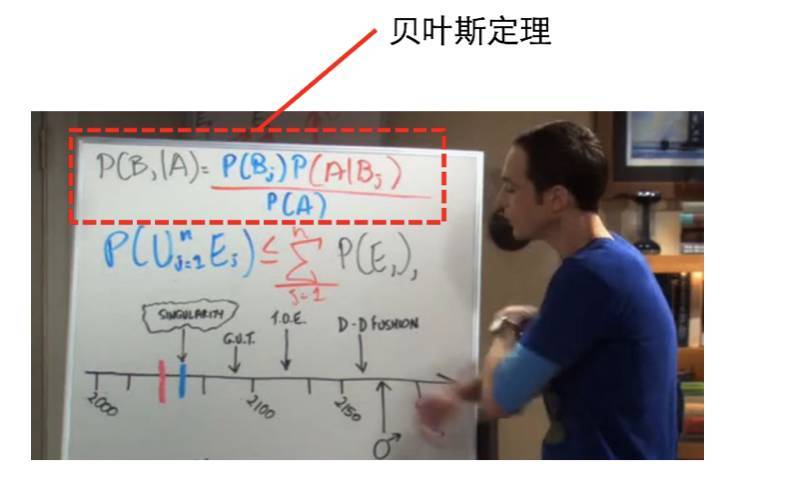 贝叶斯定理
P(B,|A)= P(Bj)P(A|Bj)
P(A)
P(U^n_{j=1} Ej) ≤ n Σ j=1 P(E,),
SINGULARITY
G.U.T.
T.O.E.
D-D FUSHION
2000
2100
2150
♂